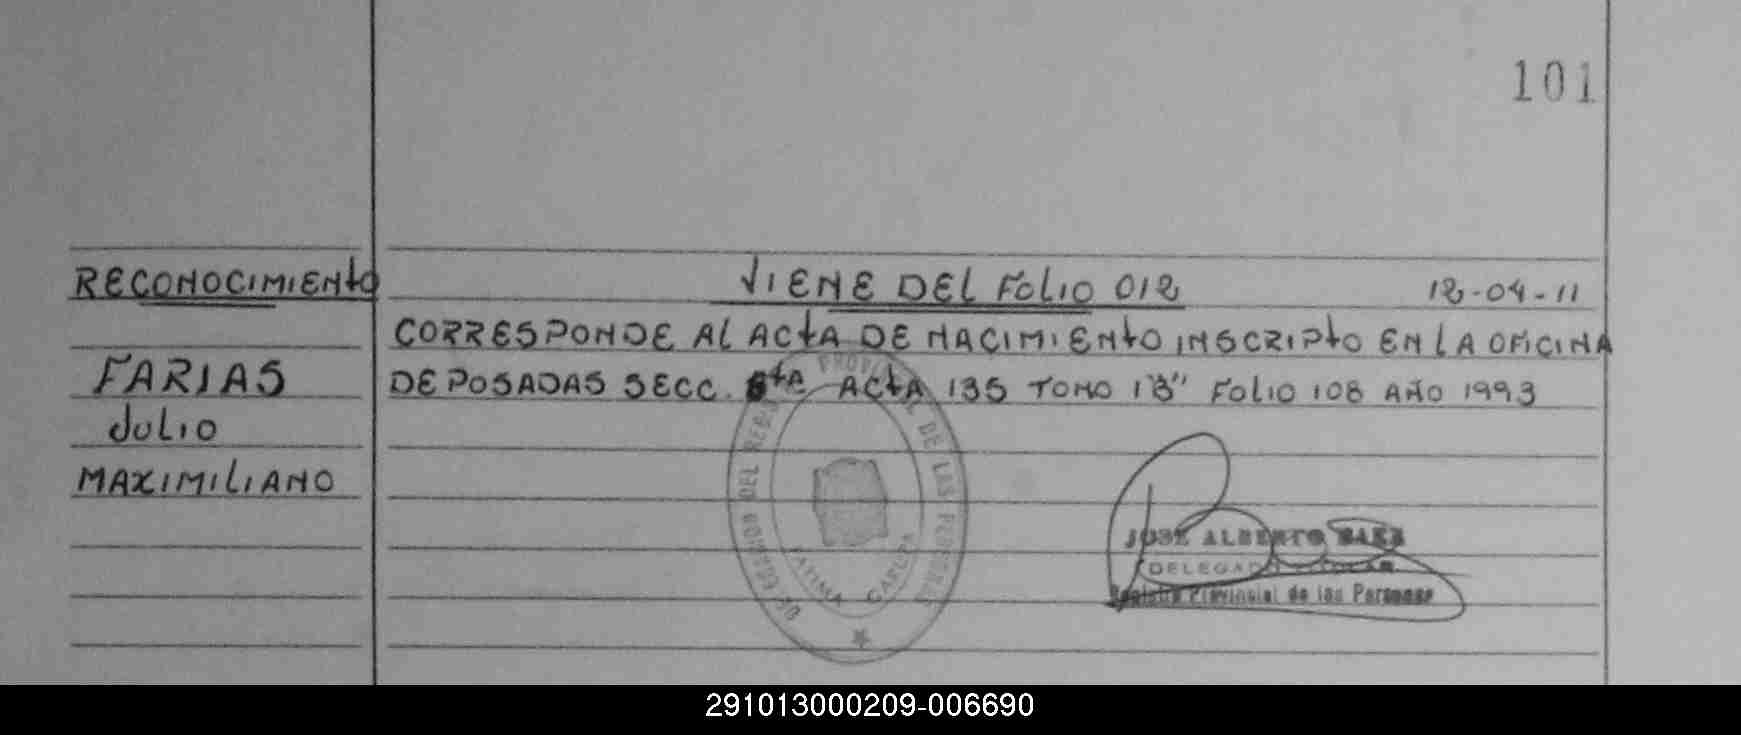 101
RECONOCIMIENTO
VIENE DEL FOLIO 012 12-04-11
CORRESPONDE AL ACTA DE NACIMIENTO INSCRIPTO EN LA OFICINA
FARIAS
DE POSADAS SECC. 6tA ACTA 135 TOMO 1"B" FOLIO 108 AÑO 1993
JULIO
MAXIMILIANO
PROVINCIAL DE LAS PERSONAS
DEL REG
FATIMA GARUPA
JOSE ALBERTO BAEZ
DELEGADO TITULAR
Registro Provincial de las Personas
291013000209-006690